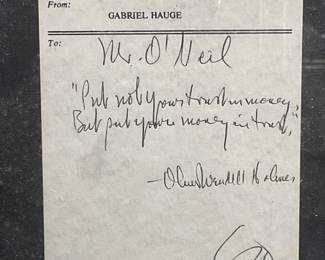 From:
GABRIEL HAUGE
To:
Mr. O'Neil
"Put not your trust in money,
But put your money in trust."
—Oliver Wendell Holmes